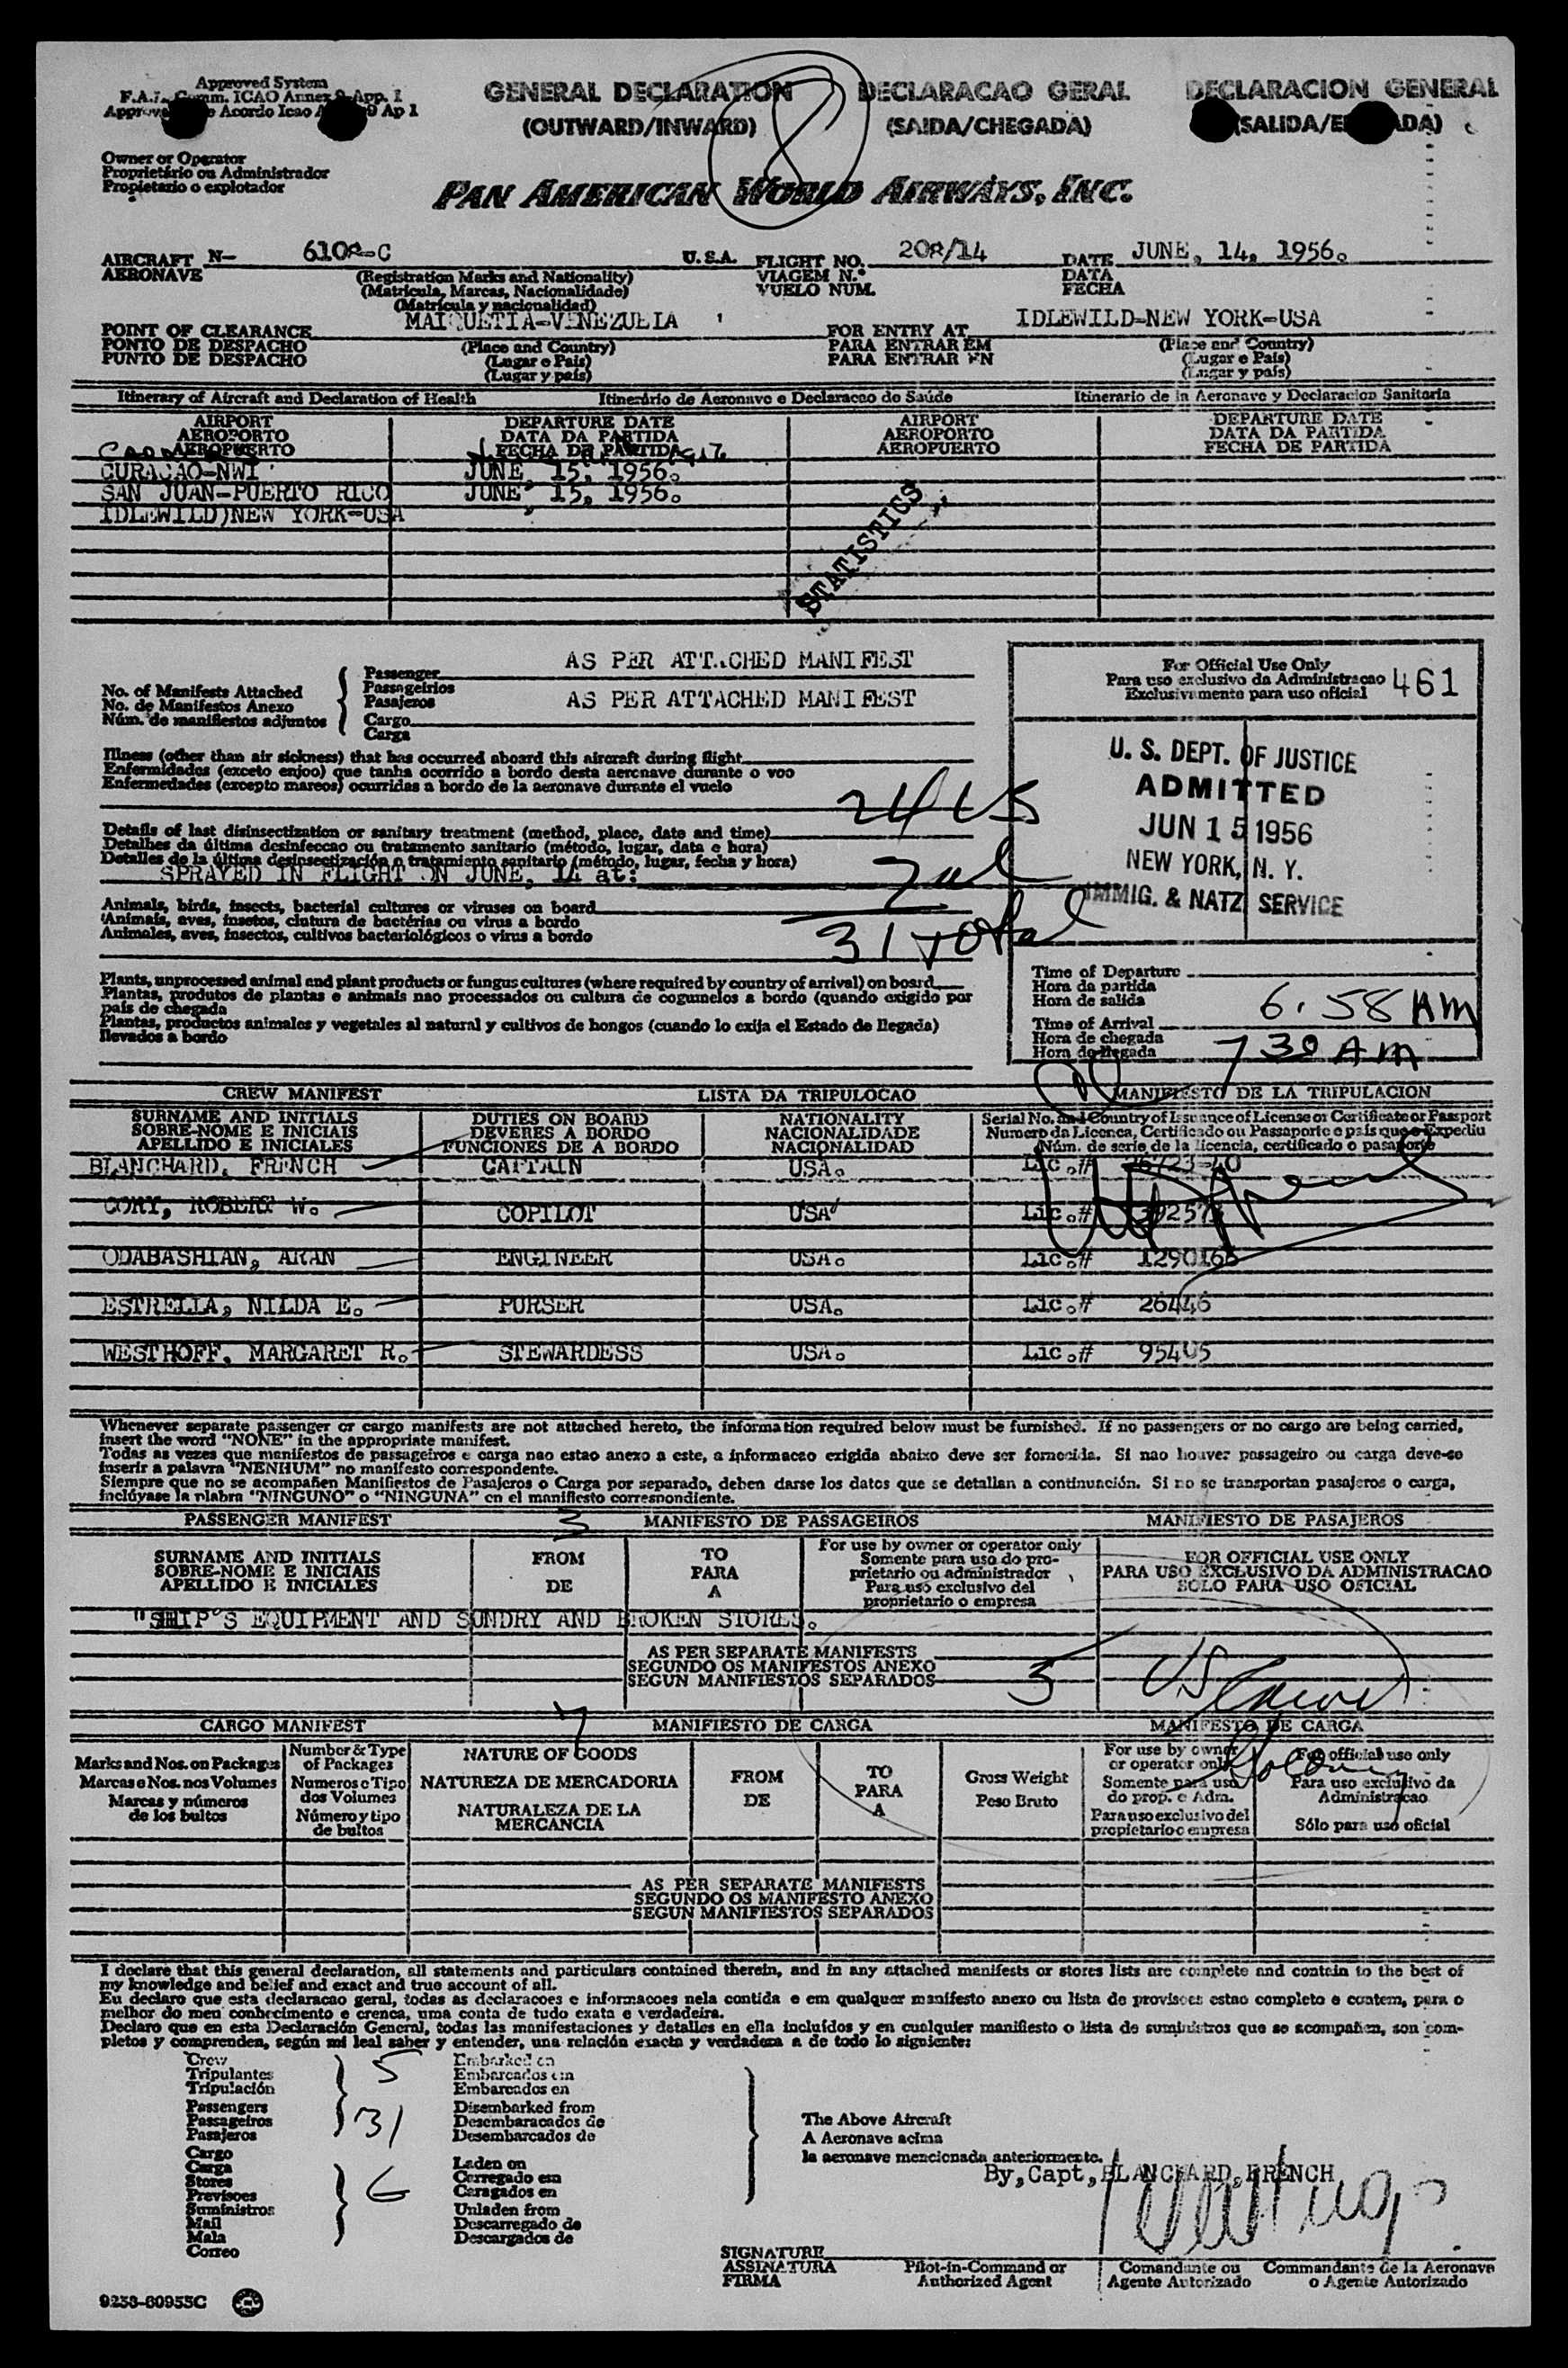 Approved System
F.A.L. Comm. ICAO Annex 9 App. 1
Acordo Icao 9 Ap 1
GENERAL DECLARATION DECLARACAO GERAL DECLARACION GENERAL
(OUTWARD/INWARD) (SAIDA/CHEGADA) (SALIDA/
8
Owner or Operator
Proprietário ou Administrador
Propietario o explotador
PAN AMERICAN WORLD AIRWAYS, INC.
AIRCRAFT N- 6108-C U.S.A. FLIGHT NO. 208/14 DATE JUNE, 14, 1956.
AERONAVE (Registration Marks and Nationality) VIAGEM N.° DATA
(Matricula, Marcas, Nacionalidade) VUELO NUM. FECHA
(Matricula y nacionalidad)
POINT OF CLEARANCE MAIQUETIA-VENEZUELA FOR ENTRY AT IDLEWILD-NEW YORK-USA
PONTO DE DESPACHO (Place and Country) PARA ENTRAR EM (Place and Country)
PUNTO DE DESPACHO (Lugar e Pais) PARA ENTRAR EN (Lugar e Pais)
(Lugar y país) (Lugar y país)
Itinerary of Aircraft and Declaration of Health Itinerário de Aeronave e Declaracao de Saúde Itinerario de la Aeronave y Declaracion Sanitaria
AIRPORT DEPARTURE DATE AIRPORT DEPARTURE DATE
AEROPORTO DATA DA PARTIDA AEROPORTO DATA DA PARTIDA
AEROPUERTO FECHA DE PARTIDA AEROPUERTO FECHA DE PARTIDA
CURACAO-NWI JUNE, 15, 1956.
SAN JUAN-PUERTO RICO JUNE, 15, 1956.
IDLEWILD)NEW YORK-USA
STATISTICS
No. of Manifests Attached
No. de Manifestos Anexo
Núm. de manifiestos adjuntos
Passenger AS PER ATTACHED MANIFEST
Passageirios
Pasajeros AS PER ATTACHED MANIFEST
Cargo
Carga
For Official Use Only
Para uso exclusivo da Administracao 461
Exclusivamente para uso oficial
U. S. DEPT. OF JUSTICE
ADMITTED
JUN 15 1956
NEW YORK, N. Y.
IMMIG. & NATZ SERVICE
Illness (other than air sickness) that has occurred aboard this aircraft during flight
Enfermidades (exceto enjoo) que tanha ocorrido a bordo desta aeronave durante o voo
Enfermedades (excepto mareos) ocurridas a bordo de la aeronave durante el vuelo
24 US
Details of last disinsectization or sanitary treatment (method, place, date and time)
Detalhes da última desinfeccao ou tratamento sanitario (método, lugar, data e hora)
Detalles de la última desinsectización o tratamiento sanitario (método, lugar, fecha y hora)
SPRAYED IN FLIGHT ON JUNE, 14 at:
7 al
Animals, birds, insects, bacterial cultures or viruses on board
Animais, aves, insetos, cintura de bactérias ou virus a bordo
Animales, aves, insectos, cultivos bacteriológicos o virus a bordo
31 total
Plants, unprocessed animal and plant products or fungus cultures (where required by country of arrival) on board
Plantas, produtos de plantas e animais nao processados ou cultura de cogumelos a bordo (quando exigido por
país de chegada
Plantas, productos animales y vegetales al natural y cultivos de hongos (cuando lo exija el Estado de llegada)
llevados a bordo
Time of Departure
Hora da partida
Hora de salida 6.58 AM
Time of Arrival
Hora de chegada
Hora de llegada 7 30 AM
CREW MANIFEST LISTA DA TRIPULOCAO MANIFIESTO DE LA TRIPULACION
SURNAME AND INITIALS DUTIES ON BOARD NATIONALITY Serial No. and Country of Issuance of License or Certificate or Passport
SOBRE-NOME E INICIAIS DEVERES A BORDO NACIONALIDADE Numero da Licenca, Certificado ou Passaporte e país que o Expediu
APELLIDO E INICIALES FUNCIONES DE A BORDO NACIONALIDAD Núm. de serie de la licencia, certificado o pasaporte
BLANCHARD, FRENCH CAPTAIN USA. Lic.#
CORY, ROBERT W. COPILOT USA Lic.#
ODABASHIAN, ARAN ENGINEER USA. Lic.#
ESTRELLA, NILDA E. PURSER USA. Lic.# 26446
WESTHOFF, MARGARET R. STEWARDESS USA. Lic.# 95405
Whenever separate passenger or cargo manifests are not attached hereto, the information required below must be furnished. If no passengers or no cargo are being carried,
insert the word "NONE" in the appropriate manifest.
Todas as vezes que manifestos de passageiros e carga nao estao anexo a este, a informacao exigida abaixo deve ser fornecida. Si nao houver passageiro ou carga deve-se
inserir a palavra "NENHUM" no manifesto correspondente.
Siempre que no se acompañen Manifiestos de Pasajeros o Carga por separado, deben darse los datos que se detallan a continunción. Si no se transportan pasajeros o carga,
inclúyase la plabra "NINGUNO" o "NINGUNA" en el manifiesto correspondiente.
PASSENGER MANIFEST 3 MANIFESTO DE PASSAGEIROS MANIFIESTO DE PASAJEROS
SURNAME AND INITIALS FROM TO For use by owner or operator only FOR OFFICIAL USE ONLY
SOBRE-NOME E INICIAIS DE PARA Somente para uso do proprietario ou administrador PARA USO EXCLUSIVO DA ADMINISTRACAO
APELLIDO E INICIALES A Para uso exclusivo del proprietario o empresa SOLO PARA USO OFICIAL
"SHIP'S EQUIPMENT AND SUNDRY AND BROKEN STORES.
AS PER SEPARATE MANIFESTS
SEGUNDO OS MANIFESTOS ANEXO
SEGUN MANIFIESTOS SEPARADOS 5 US
CARGO MANIFEST MANIFIESTO DE CARGA MANIFESTO DE CARGA
Marks and Nos. on Packages Number & Type of Packages NATURE OF GOODS FROM TO Gross Weight For use by owner or operator only For official use only
Marcas e Nos. nos Volumes Numeros e Tipo dos Volumes NATUREZA DE MERCADORIA DE PARA Peso Bruto Somente para uso do prop. e Adm. Para uso exclusivo da Administracao
Marcas y números de los bultos Número y tipo de bultos NATURALEZA DE LA MERCANCIA A Para uso exclusivo del propietario o empresa Sólo para uso oficial
AS PER SEPARATE MANIFESTS
SEGUNDO OS MANIFESTO ANEXO
SEGUN MANIFIESTOS SEPARADOS
I declare that this general declaration, all statements and particulars contained therein, and in any attached manifests or stores lists are complete and contain to the best of
my knowledge and belief and exact and true account of all.
Eu declaro que esta declaracao geral, todas as declaracoes e informacoes nela contida e em qualquer manifesto anexo ou lista de provisoes estao completo e contem, para o
melhor do meu conhecimento e crenca, uma conta de tudo exata e verdadeira.
Declaro que en esta Declaración General, todas las manifestaciones y detalles en ella incluídos y en cualquier manifiesto o lista de suministros que se acompañen, son com-
pletos y comprenden, según mi leal saber y entender, una relación exacta y verdadera a de todo lo siguiente:
Crew Embarked on
Tripulantes 5 Embarcados em
Tripulación Embarcados en
Passengers Disembarked from
Passageiros 31 Desembaracados de
Pasajeros Desembarcados de
Cargo
Carga Laden on
Stores Carregado em
Previsoes 6 Caragados en
Suministros Unladen from
Mail Descarregado de
Mala Descargados de
Correo
The Above Aircraft
A Aeronave acima
la aeronave mencionada anteriormente.
By, Capt, BLANCHARD, FRENCH
SIGNATURE
ASSINATURA Pilot-in-Command or Comandante ou Commandante de la Aeronave
FIRMA Authorized Agent Agente Autorizado o Agente Autorizado
9238-60955C